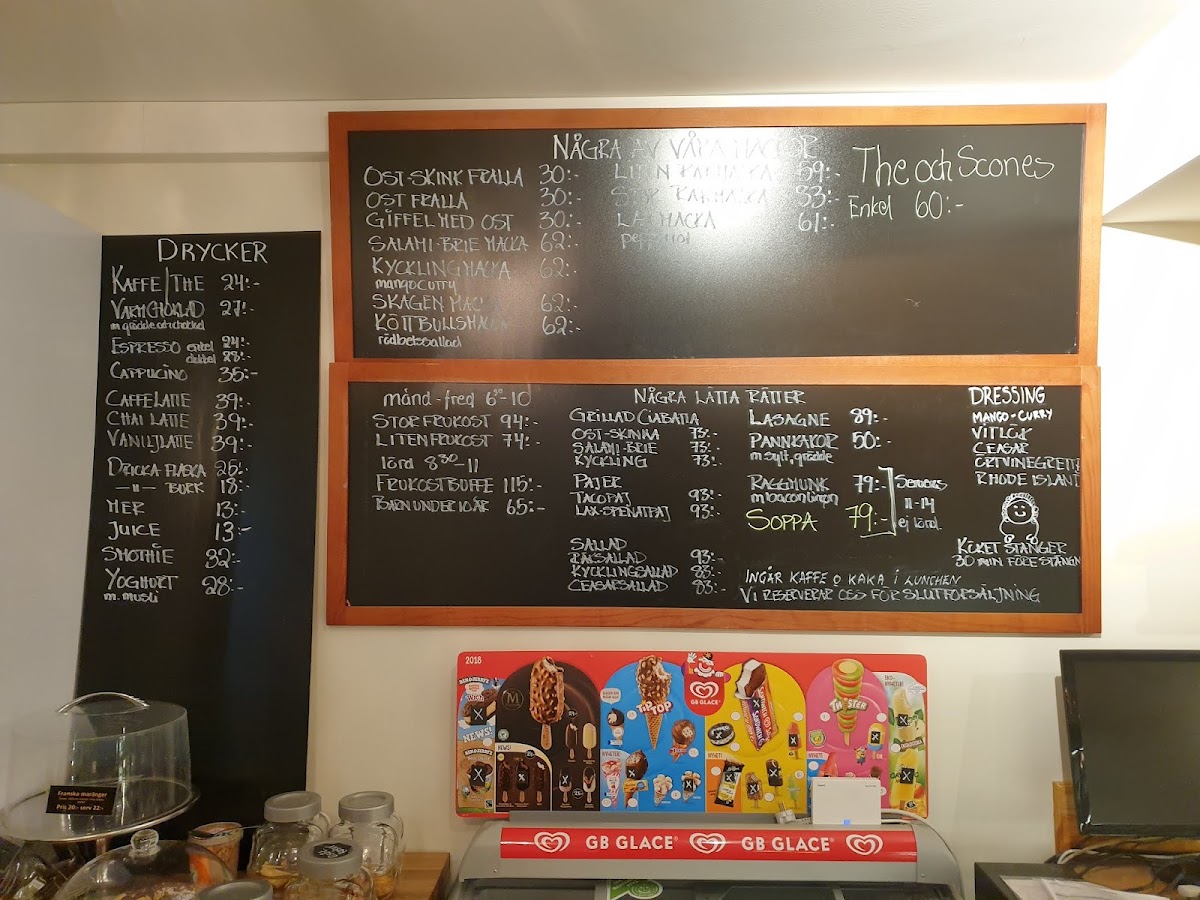 DRYCKER
KAFFE/THE 24:-
VARMCHOKLAD 27:-
m grädde och choklad
ESPRESSO enkel 24:-
dubbel 28:-
CAPPUCINO 35:-
CAFFE LATTE 39:-
CHAI LATTE 39:-
VANILJLATTE 39:-
DRICKA FLASKA 25:-
— 11 — BURK 18:-
MER 13:-
JUICE 13:-
SMOTHIE 32:-
YOGHURT 28:-
m. musli
NÅGRA AV VÅRA MACKOR
OST-SKINK FRALLA 30:-
OST FRALLA 30:-
GIFFEL MED OST 30:-
SALAMI-BRIE MACKA 62:-
KYCKLINGMACKA 62:-
mangocurry
SKAGEN MACKA 62:-
KÖTTBULLSMACKA 62:-
rödbetssallad
LITEN RÄKMACKA 59:-
STOR RÄKMACKA
LAXMACKA 61:-
The och Scones
Enkel 60:-
månd-fred 6³⁰-10
STOR FRUKOST 94:-
LITEN FRUKOST 74:-
lörd 8³⁰-11
FRUKOSTBUFFE 115:-
BARN UNDER 10 ÅR 65:-
NÅGRA LÄTTA RÄTTER
GRILLAD CIABATTA
OST-SKINKA 73:-
SALAMI-BRIE 73:-
KYCKLING 73:-
PAJER
TACOPAJ 93:-
LAX-SPENATPAJ 93:-
SALLAD
RÄKSALLAD 93:-
KYCKLINGSALLAD 83:-
CEASARSALLAD 83:-
LASAGNE 89:-
PANNKAKOR 50:-
m sylt, grädde
RAGGMUNK 79:-
m bacon lingon
SOPPA 79:-
Serveras
11-14
ej lörd.
INGÅR KAFFE O KAKA I LUNCHEN
VI RESERVERAR OSS FÖR SLUTFÖRSÄLJNING
DRESSING
MANGO-CURRY
VITLÖK
CEASAR
ÖRTVINEGRETTE
RHODE ISLAND
KÖKET STÄNGER
30 MIN FÖRE STÄNGN
2018
BEN & JERRY'S
NEWS!
M
NEWS!
TIP TOP
GB GLACE
SANDWICH
TWISTER
GB GLACE GB GLACE
Franska maränger
Pris 20:- serv 22:-